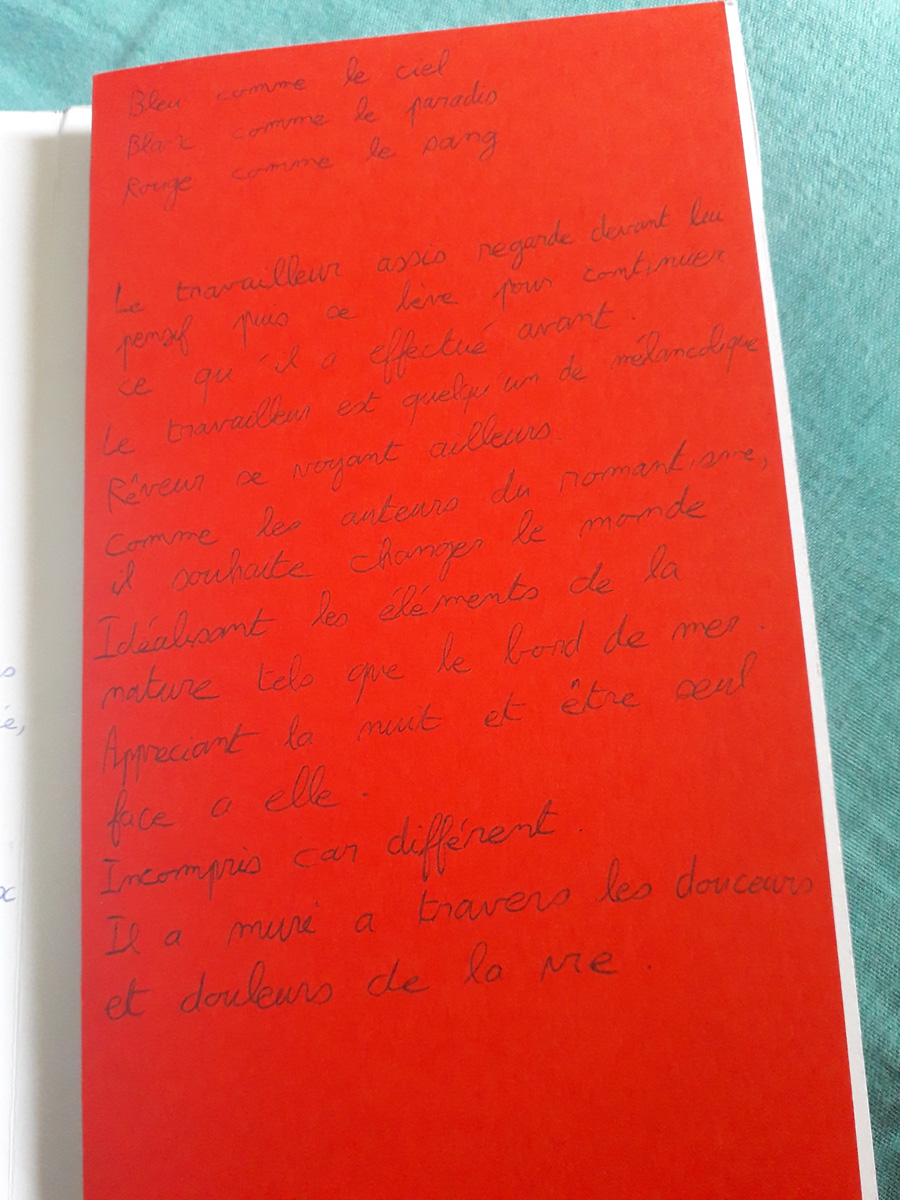 Bleu comme le ciel
Blanc comme le paradis
Rouge comme le sang
Le travailleur assis regarde devant lui
pensif puis se lève pour continuer
ce qu'il a effectué avant.
Le travailleur est quelqu'un de mélancolique
Rêveur se voyant ailleurs.
Comme les auteurs du romantisme,
il souhaite changer le monde
Idéalisant les éléments de la
nature tels que le bord de mer.
Appreciant la nuit et être seul
face a elle.
Incompris car différent.
Il a muri a travers les douceurs
et douleurs de la vie.